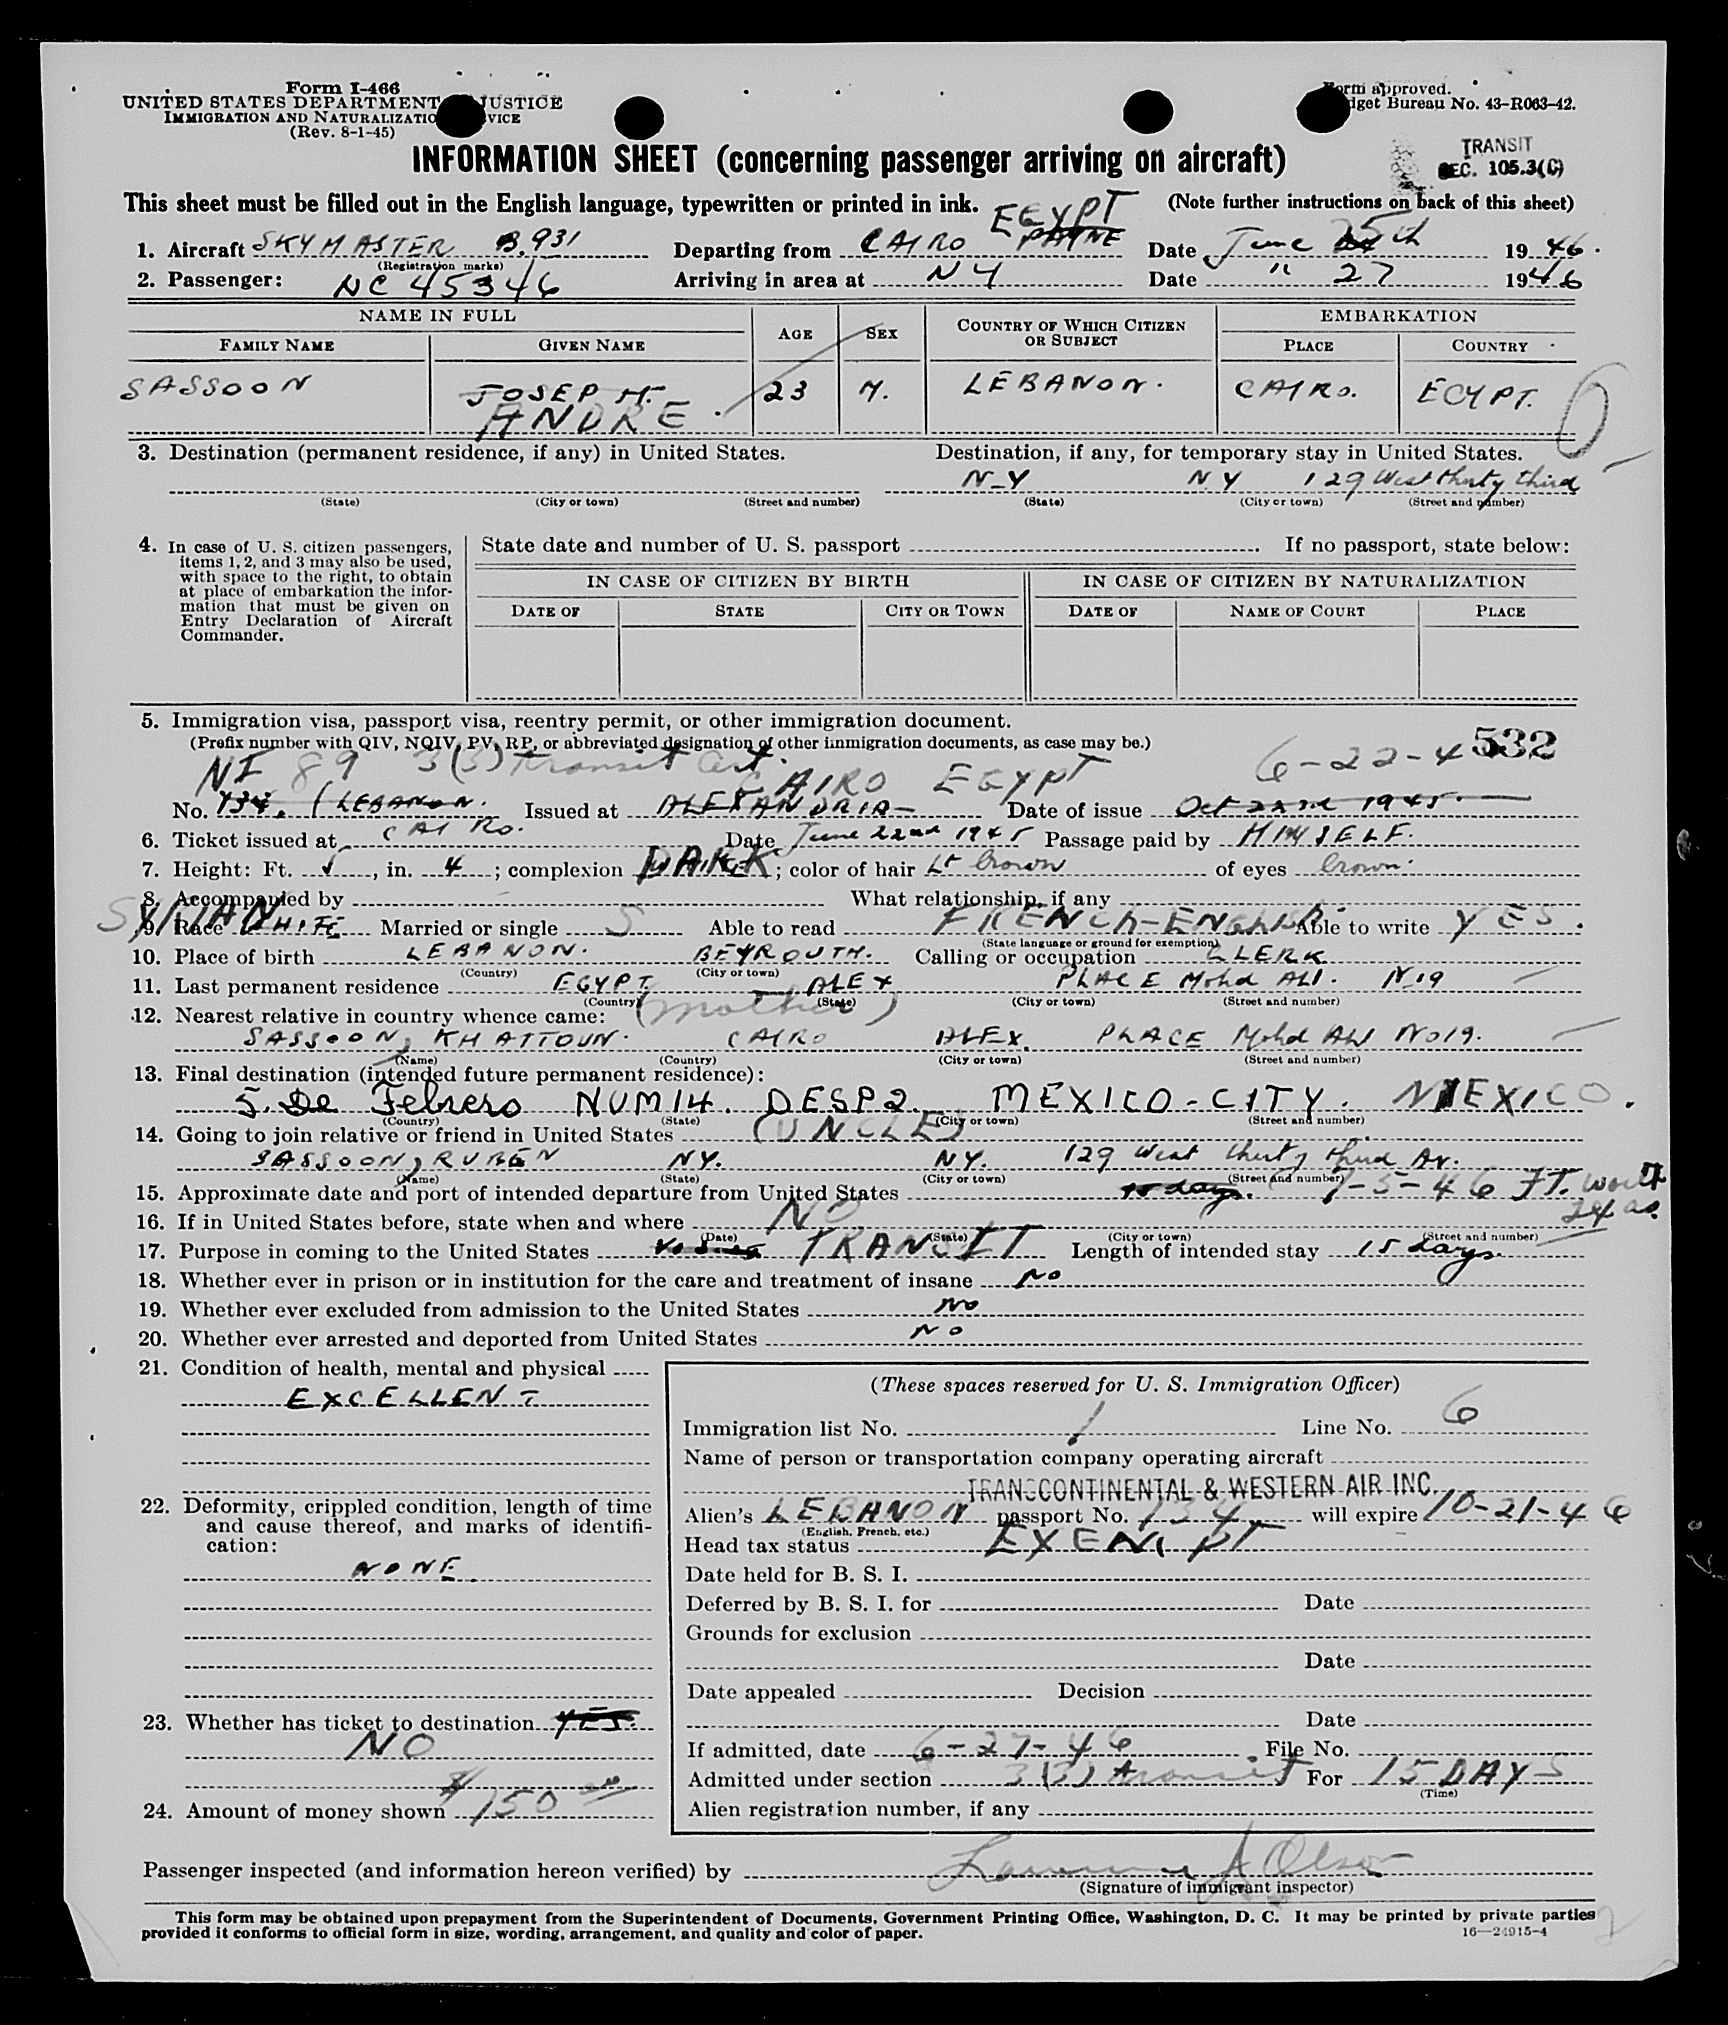 Form I-466
UNITED STATES DEPARTMENT JUSTICE
IMMIGRATION AND NATURALIZATIO VICE
(Rev. 8-1-45)
orm approved.
dget Bureau No. 43-R063-42.
TRANSIT
SEC. 105.3(C)
INFORMATION SHEET (concerning passenger arriving on aircraft)
This sheet must be filled out in the English language, typewritten or printed in ink. (Note further instructions on back of this sheet)
EGYPT
1. Aircraft SKYMASTER B.931 Departing from CAIRO PAYNE Date June 25th 1946.
(Registration marks)
2. Passenger: NC 45346 Arriving in area at NY Date " 27 1946
NAME IN FULL AGE SEX COUNTRY OF WHICH CITIZEN OR SUBJECT EMBARKATION
FAMILY NAME GIVEN NAME PLACE COUNTRY
SASSOON JOSEPH. 23 M. LEBANON. CAIRO. EGYPT.
ANDRE.
3. Destination (permanent residence, if any) in United States. Destination, if any, for temporary stay in United States.
N-Y N.Y 129 West thirty third
(State) (City or town) (Street and number) (State) (City or town) (Street and number)
4. In case of U. S. citizen passengers, items 1, 2, and 3 may also be used, with space to the right, to obtain at place of embarkation the information that must be given on Entry Declaration of Aircraft Commander.
State date and number of U. S. passport If no passport, state below:
IN CASE OF CITIZEN BY BIRTH IN CASE OF CITIZEN BY NATURALIZATION
DATE OF STATE CITY OR TOWN DATE OF NAME OF COURT PLACE
5. Immigration visa, passport visa, reentry permit, or other immigration document.
(Prefix number with QIV, NQIV, PV, RP, or abbreviated designation of other immigration documents, as case may be.) 532
NI 89 3(3) transit cert. CAIRO EGYPT 6-22-4
No. 734. (LEBANON. Issued at ALEXANDRIA- Date of issue Oct 22nd 1945.
6. Ticket issued at CAIRO. Date June 22nd 1945 Passage paid by HIMSELF.
7. Height: Ft. 5, in. 4; complexion DARK; color of hair Lt brown of eyes brown.
8. Accompanied by What relationship, if any
SYRIAN
9. Race WHITE Married or single S Able to read FRENCH-ENGLISH. Able to write YES.
(State language or ground for exemption)
10. Place of birth LEBANON. BEYROUTH. Calling or occupation CLERK
(Country) (City or town)
11. Last permanent residence EGYPT. ALEX PLACE Mohd ALI. N-19
(Country) (State) (City or town) (Street and number)
12. Nearest relative in country whence came: (mother)
SASSOON, KHATTOUN. CAIRO ALEX. PLACE Mohd ALI No19.
(Name) (Country) (City or town) (Street and number)
13. Final destination (intended future permanent residence):
5. De Febrero NUM14. DESP2. MEXICO-CITY. MEXICO.
(Country) (State) (City or town) (Street and number)
14. Going to join relative or friend in United States (UNCLE)
SASSOON, RUBEN NY. NY. 129 West thirty third Av.
(Name) (State) (City or town) (Street and number)
15. Approximate date and port of intended departure from United States 15 days. 7-5-46 FT. Worth
16. If in United States before, state when and where NO
(Date) (State) (City or town) (Street and number)
17. Purpose in coming to the United States TRANSIT Length of intended stay 15 days.
18. Whether ever in prison or in institution for the care and treatment of insane No
19. Whether ever excluded from admission to the United States No
20. Whether ever arrested and deported from United States No
21. Condition of health, mental and physical
EXCELLENT
22. Deformity, crippled condition, length of time and cause thereof, and marks of identification:
NONE.
23. Whether has ticket to destination YES.
NO
24. Amount of money shown $150 00
(These spaces reserved for U. S. Immigration Officer)
Immigration list No. 1 Line No. 6
Name of person or transportation company operating aircraft
TRANSCONTINENTAL & WESTERN AIR INC.
Alien's LEBANON passport No. 134 will expire 10-21-46
(English, French, etc.)
Head tax status EXEMPT
Date held for B. S. I.
Deferred by B. S. I. for Date
Grounds for exclusion
Date
Date appealed Decision
Date
If admitted, date 6-27-46 File No.
Admitted under section 3(3) transit For 15 DAYS
(Time)
Alien registration number, if any
Passenger inspected (and information hereon verified) by Lawrence A Olson
(Signature of immigrant inspector)
This form may be obtained upon prepayment from the Superintendent of Documents, Government Printing Office, Washington, D. C. It may be printed by private parties
provided it conforms to official form in size, wording, arrangement, and quality and color of paper. 16—24915-4